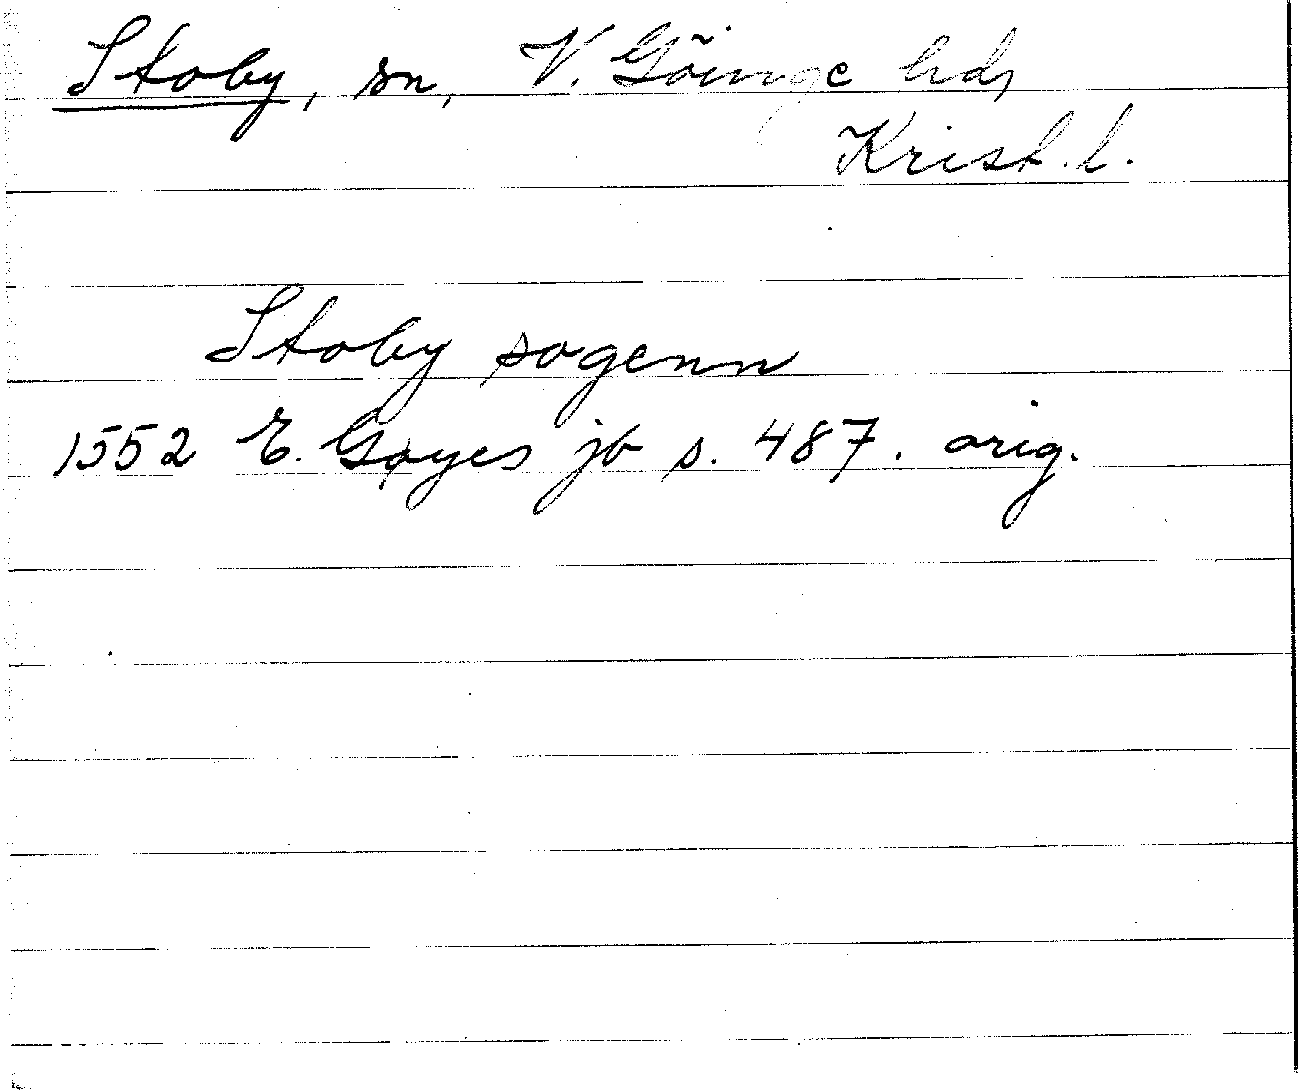 Stoby, sn, V. Göinge hd,
Krist. l.
Stoby sogenn
1552 E. Gøyes jb s. 487. orig.